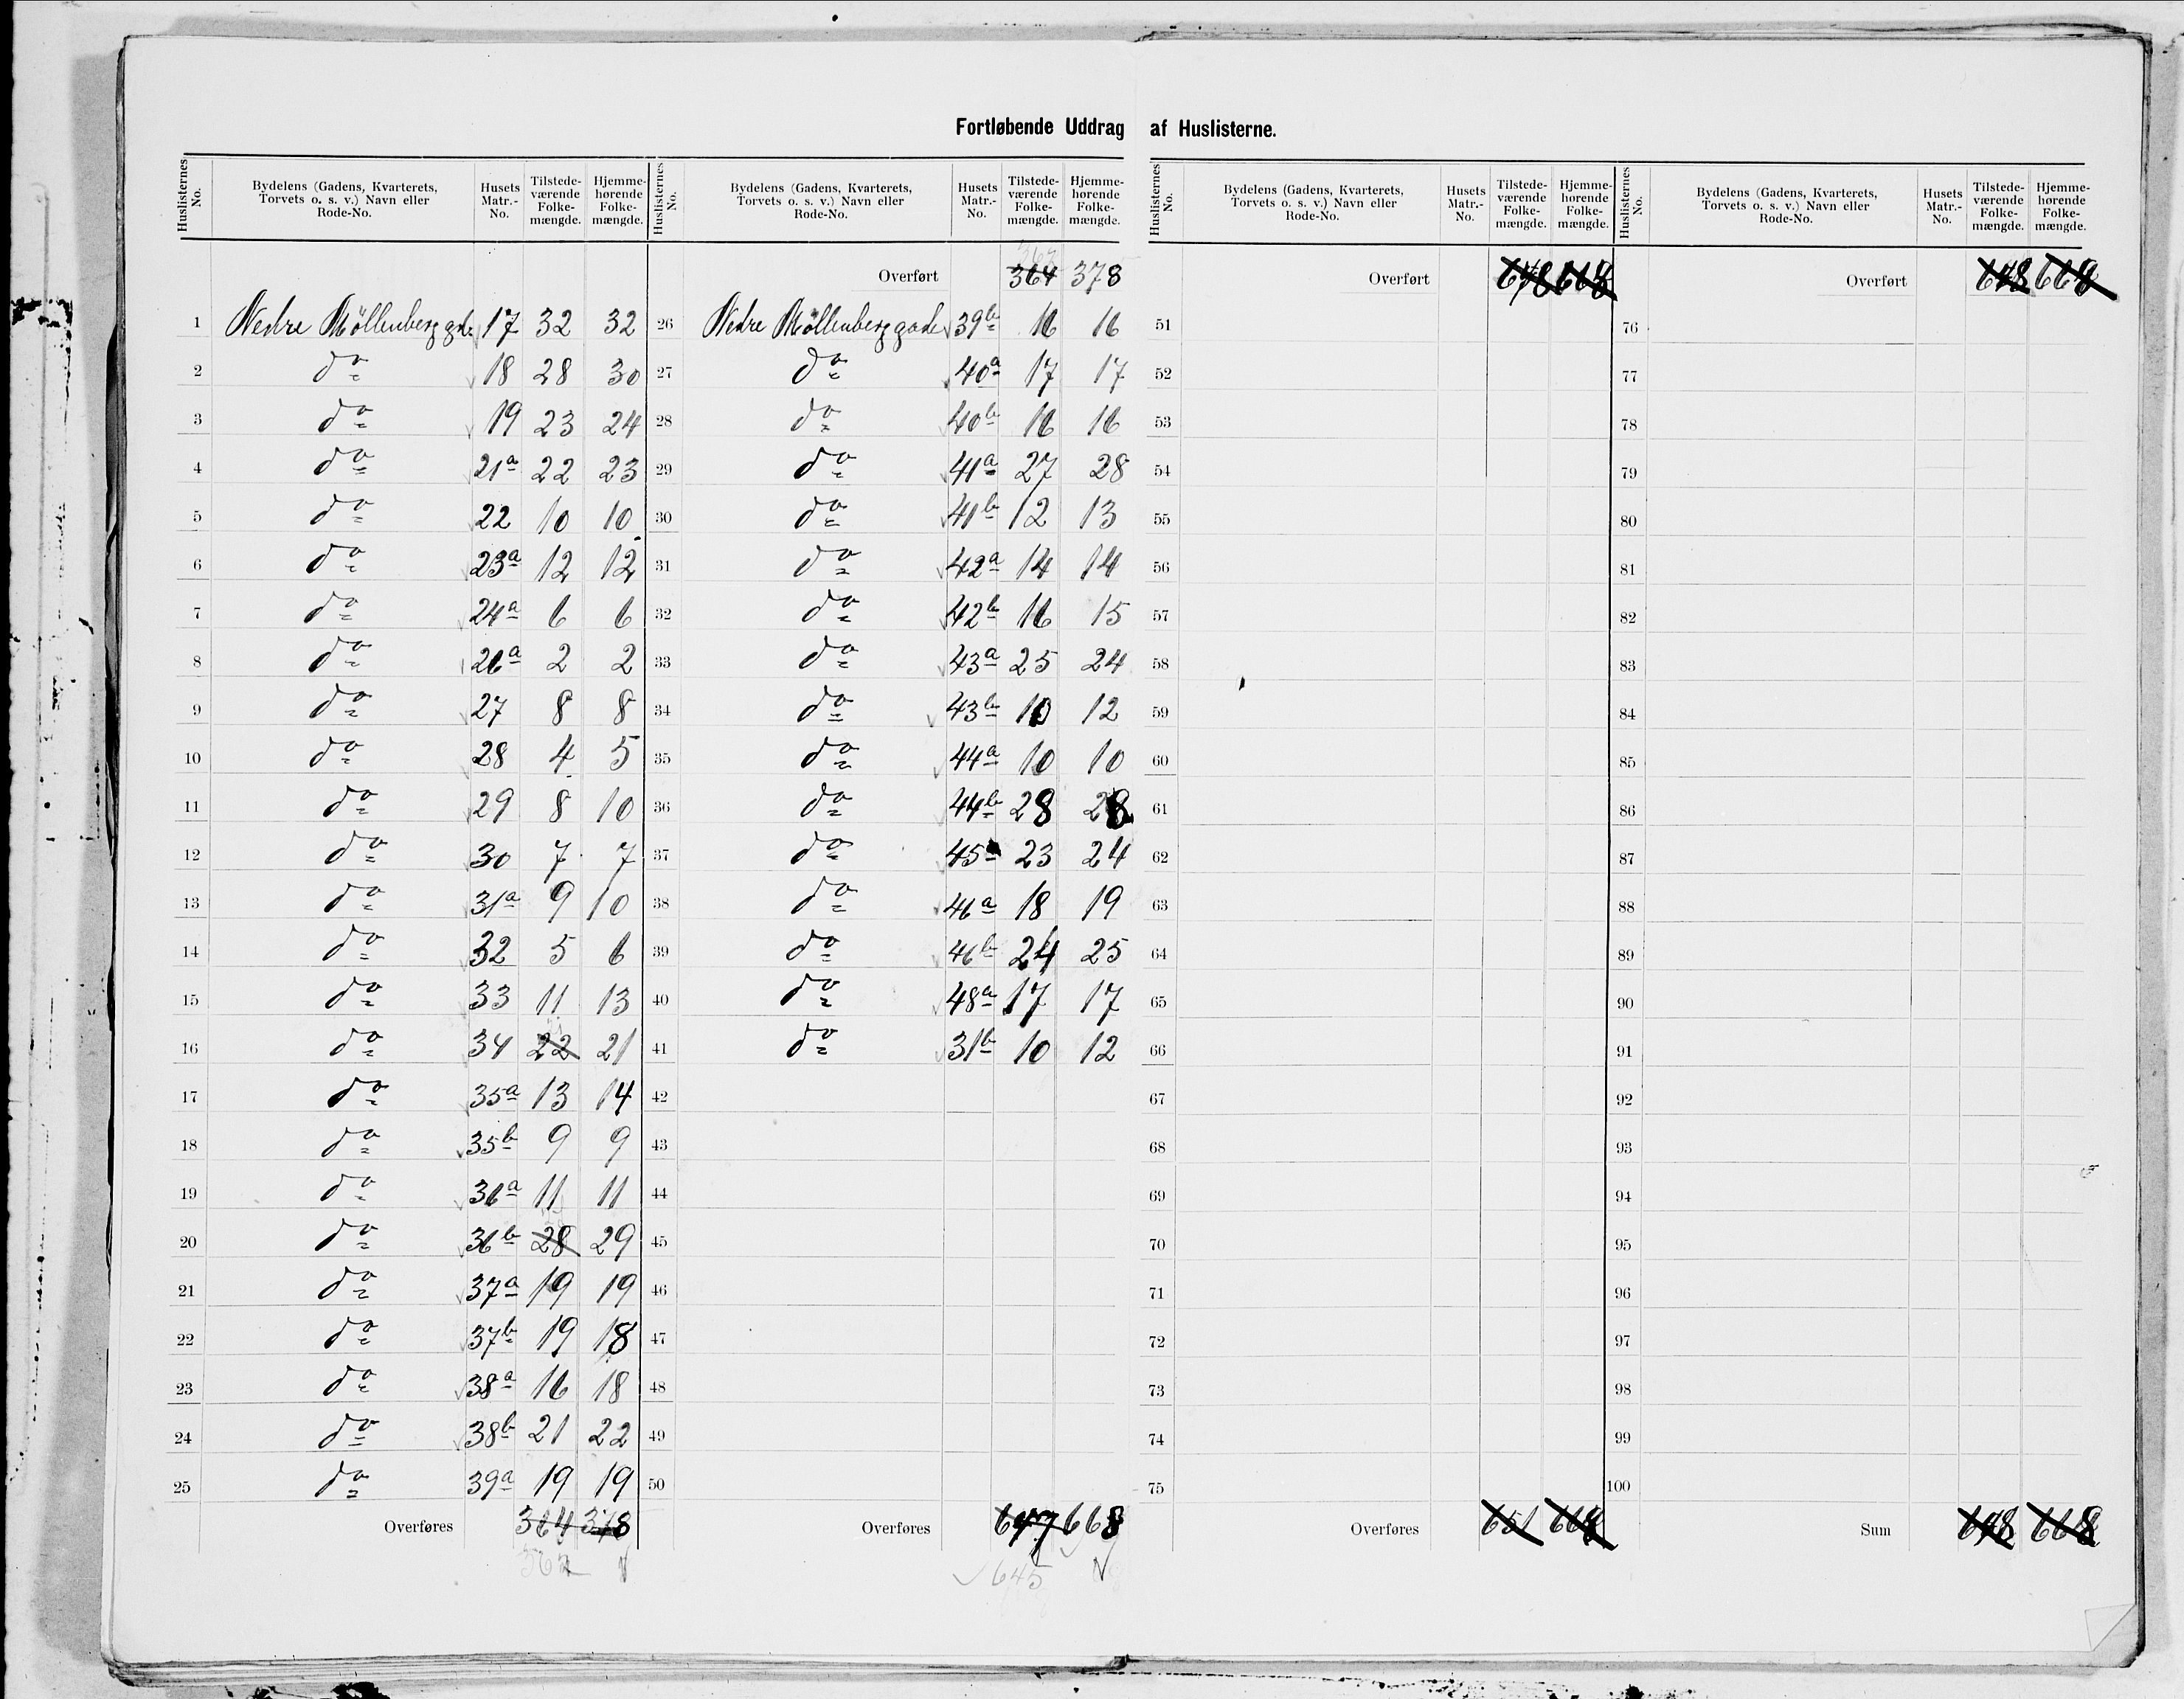 Fortløbende Uddrag af Huslisterne.
Huslisternes No. Bydelens (Gadens, Kvarterets, Torvets o. s. v.) Navn eller Rode-No. Husets Matr.-No. Tilstedeværende Folkemængde. Hjemmehørende Folkemængde.
1 Nedre Möllenberg gde 17 32 32
2 do 18 28 30
3 do 19 23 24
4 do 21a 22 23
5 do 22 10 10
6 do 23a 12 12
7 do 24a 6 6
8 do 26a 2 2
9 do 27 8 8
10 do 28 4 5
11 do 29 8 10
12 do 30 7 7
13 do 31a 9 10
14 do 32 5 6
15 do 33 11 13
16 do 34 22 21
17 do 35a 13 14
18 do 35b 9 9
19 do 36a 11 11
20 do 36b 28 29
21 do 37a 19 19
22 do 37b 19 18
23 do 38a 16 18
24 do 38b 21 22
25 do 39a 19 19
Overføres 364 378
362
Huslisternes No. Bydelens (Gadens, Kvarterets, Torvets o. s. v.) Navn eller Rode-No. Husets Matr.-No. Tilstedeværende Folkemængde. Hjemmehørende Folkemængde.
Overført 364 378
26 Nedre Möllenberg gade 39b 16 16
27 do 40a 17 17
28 do 40b 16 16
29 do 41a 27 28
30 do 41b 12 13
31 do 42a 14 14
32 do 42b 16 15
33 do 43a 25 24
34 do 43b 10 12
35 do 44a 10 10
36 do 44b 28 28
37 do 45 23 24
38 do 46a 18 19
39 do 46b 24 25
40 do 48a 17 17
41 do 31b 10 12
42
43
44
45
46
47
48
49
50
Overføres 647 668
645
Huslisternes No. Bydelens (Gadens, Kvarterets, Torvets o. s. v.) Navn eller Rode-No. Husets Matr.-No. Tilstedeværende Folkemængde. Hjemmehørende Folkemængde.
Overført 648 668
51
52
53
54
55
56
57
58
59
60
61
62
63
64
65
66
67
68
69
70
71
72
73
74
75
Overføres 651 668
Huslisternes No. Bydelens (Gadens, Kvarterets, Torvets o. s. v.) Navn eller Rode-No. Husets Matr.-No. Tilstedeværende Folkemængde. Hjemmehørende Folkemængde.
Overført 648 668
76
77
78
79
80
81
82
83
84
85
86
87
88
89
90
91
92
93
94
95
96
97
98
99
100
Sum 648 668